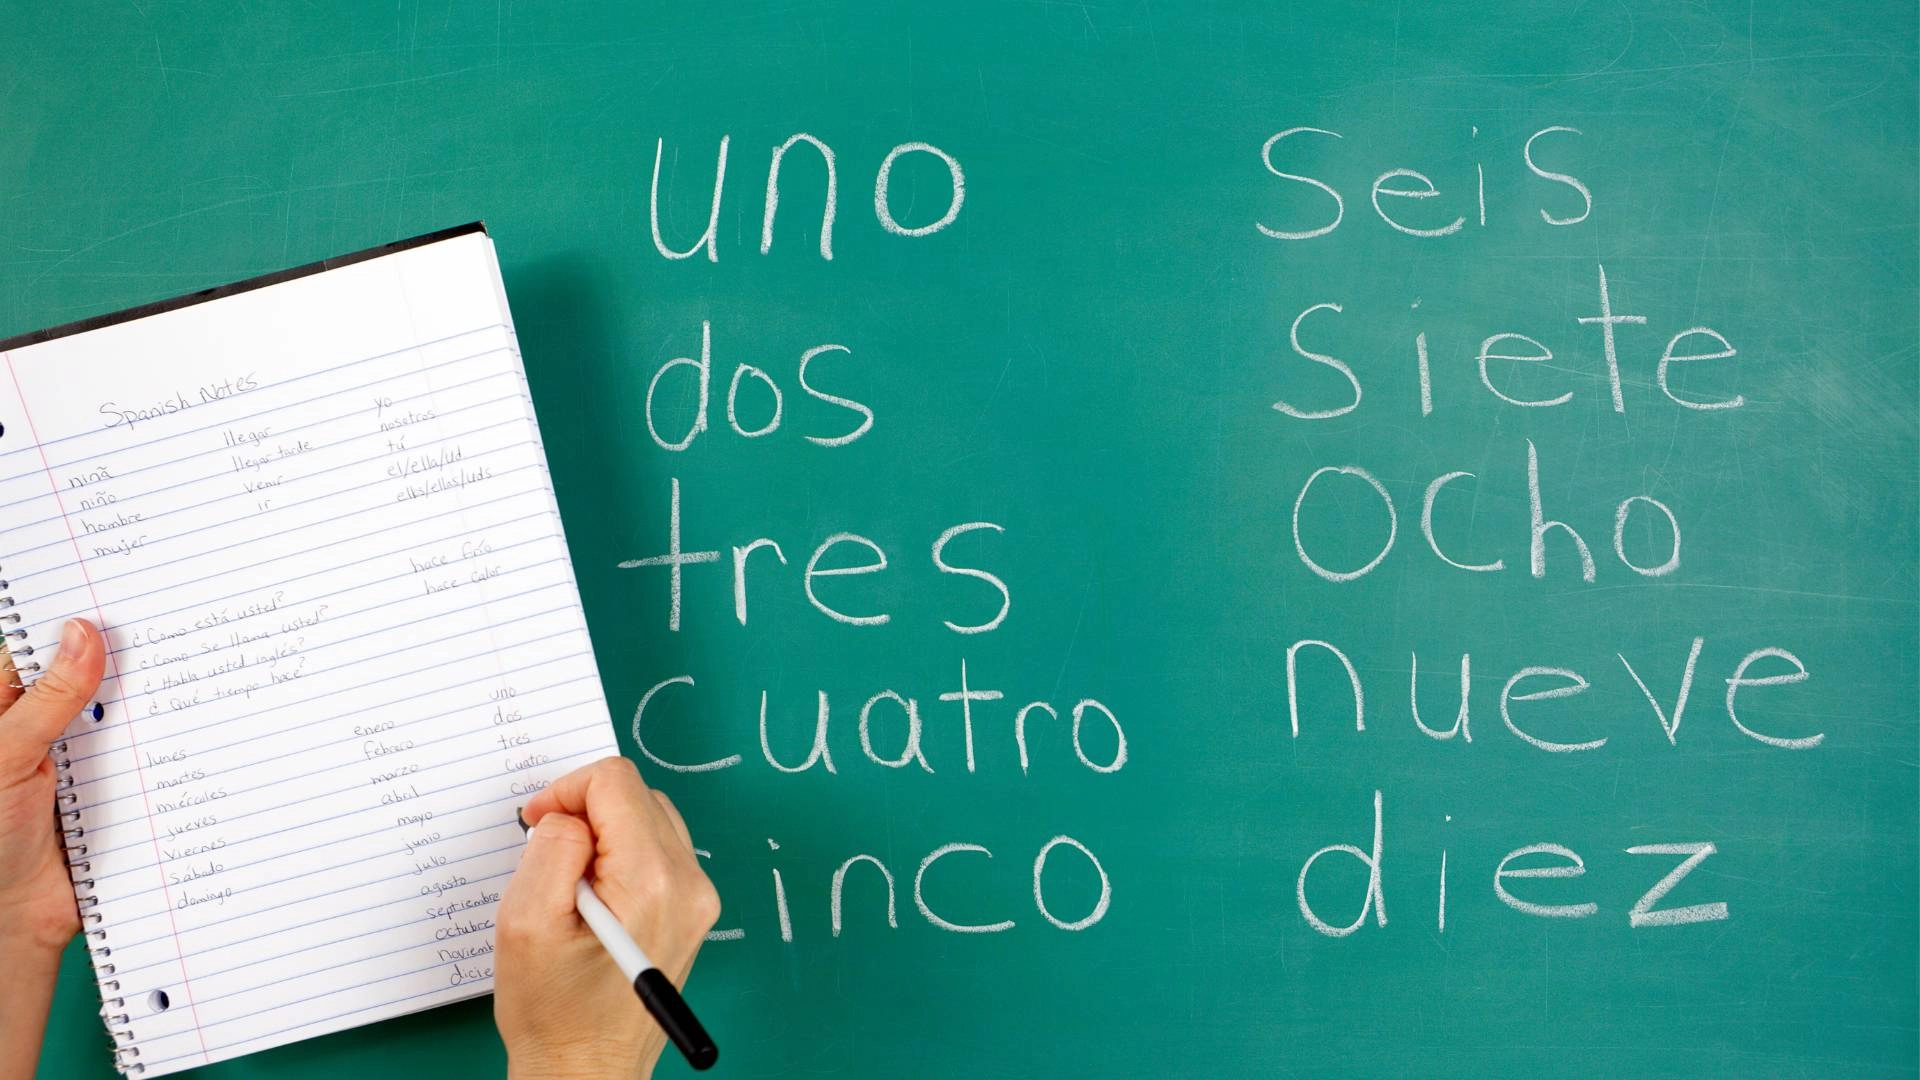 Spanish Notes
ninã
niño
hombre
mujer
llegar
llegar tarde
venir
ir
yo
nosotros
tú
el/ella/ud.
ellos/ellas/uds
hace frío
hace calor
¿Como está usted?
¿Como se llama usted?
¿Habla usted inglés?
¿Qué tiempo hace?
lunes
martes
miércoles
jueves
viernes
sábado
domingo
enero
febrero
marzo
abril
mayo
junio
julio
agosto
septiembre
octubre
noviemb
dicie
uno
dos
tres
cuatro
cinco
uno
dos
tres
cuatro
cinco
seis
siete
ocho
nueve
diez